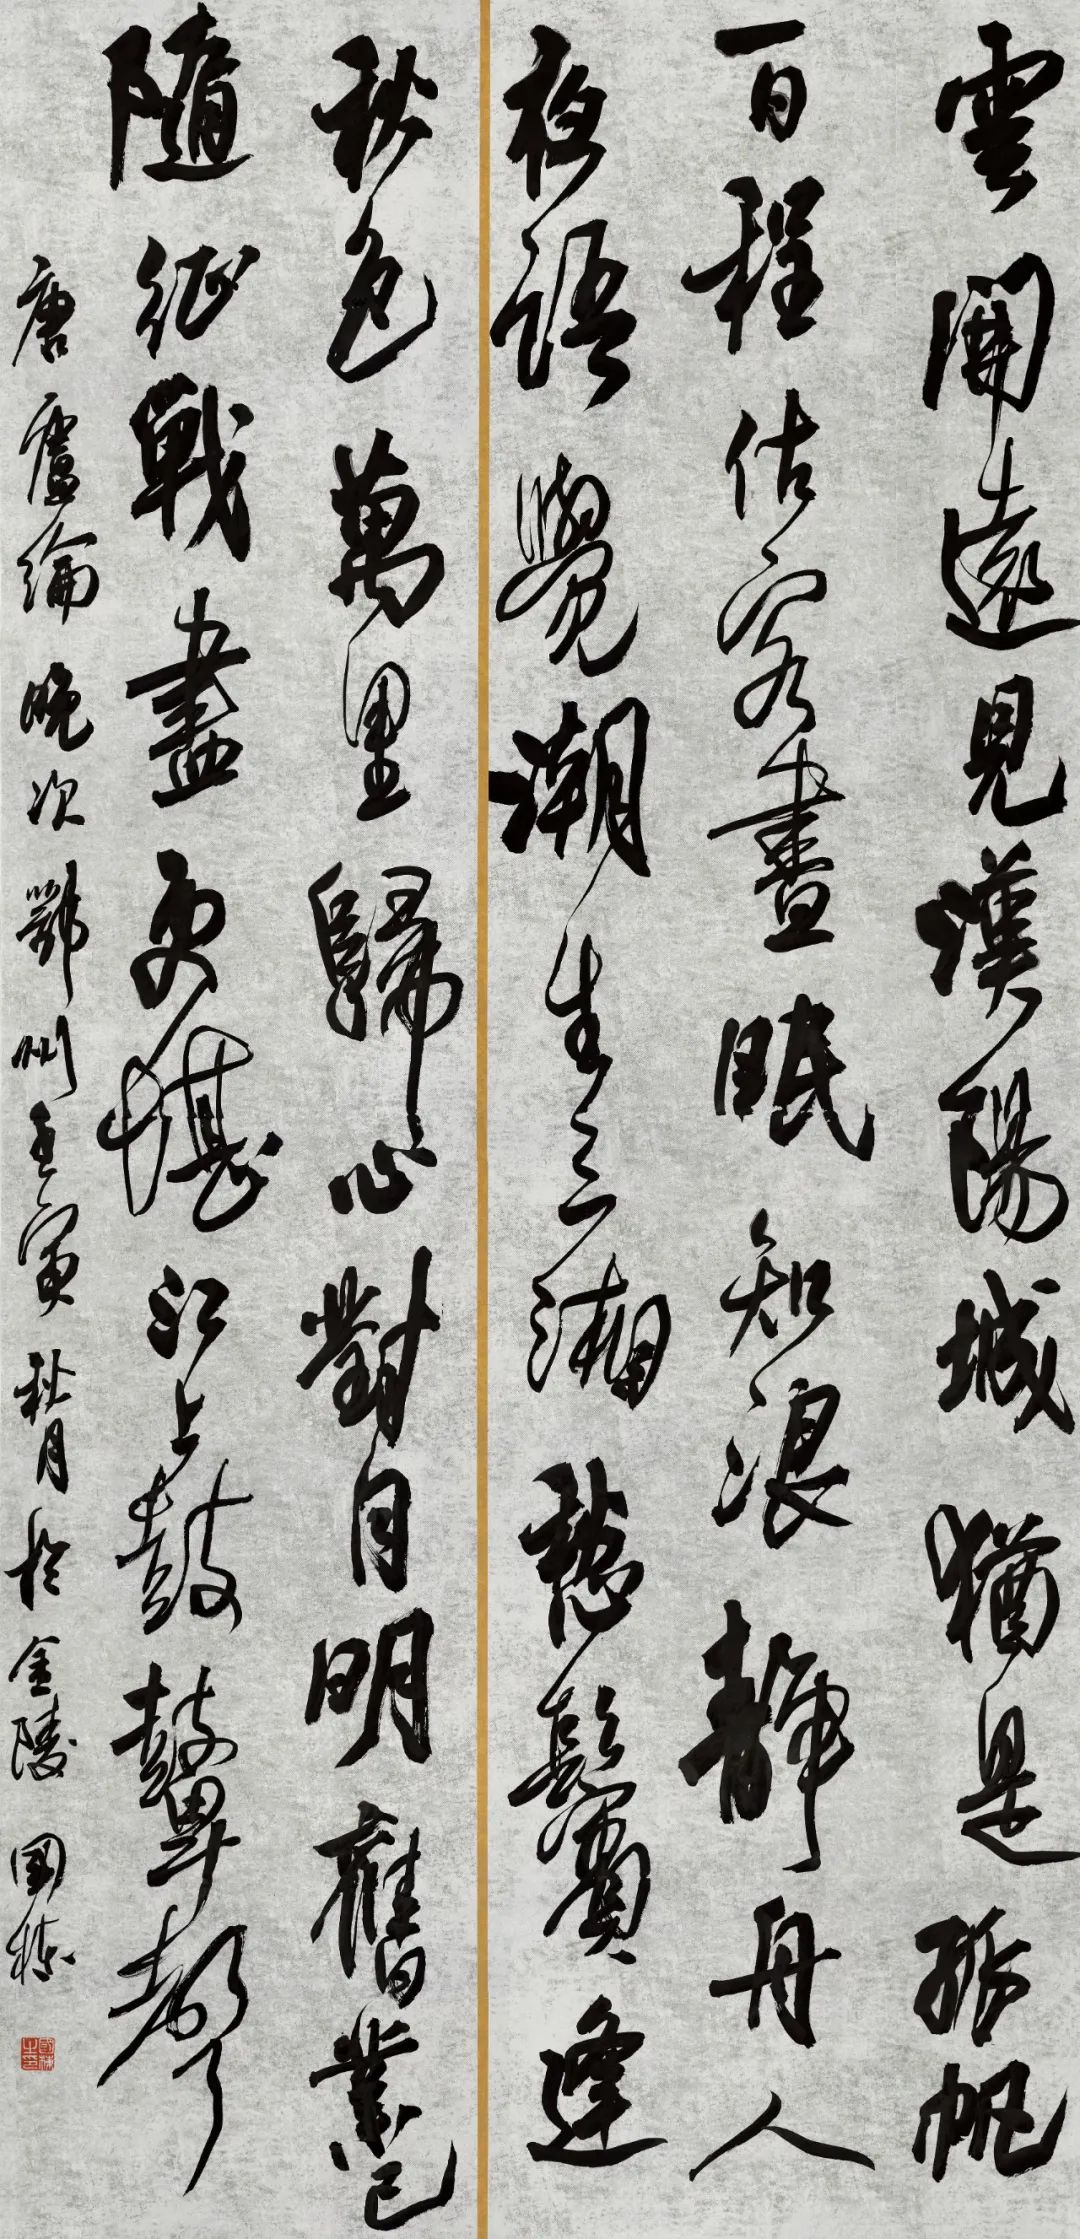 雲開遠見漢陽城猶是孤帆
一日程估客晝眠知浪靜舟人
夜語覺潮生三湘愁鬢逢
秋色萬里歸心對月明舊業已
隨征戰盡更堪江上鼓鼙聲
唐盧綸晚次鄂州壬寅秋月於金陵國樑